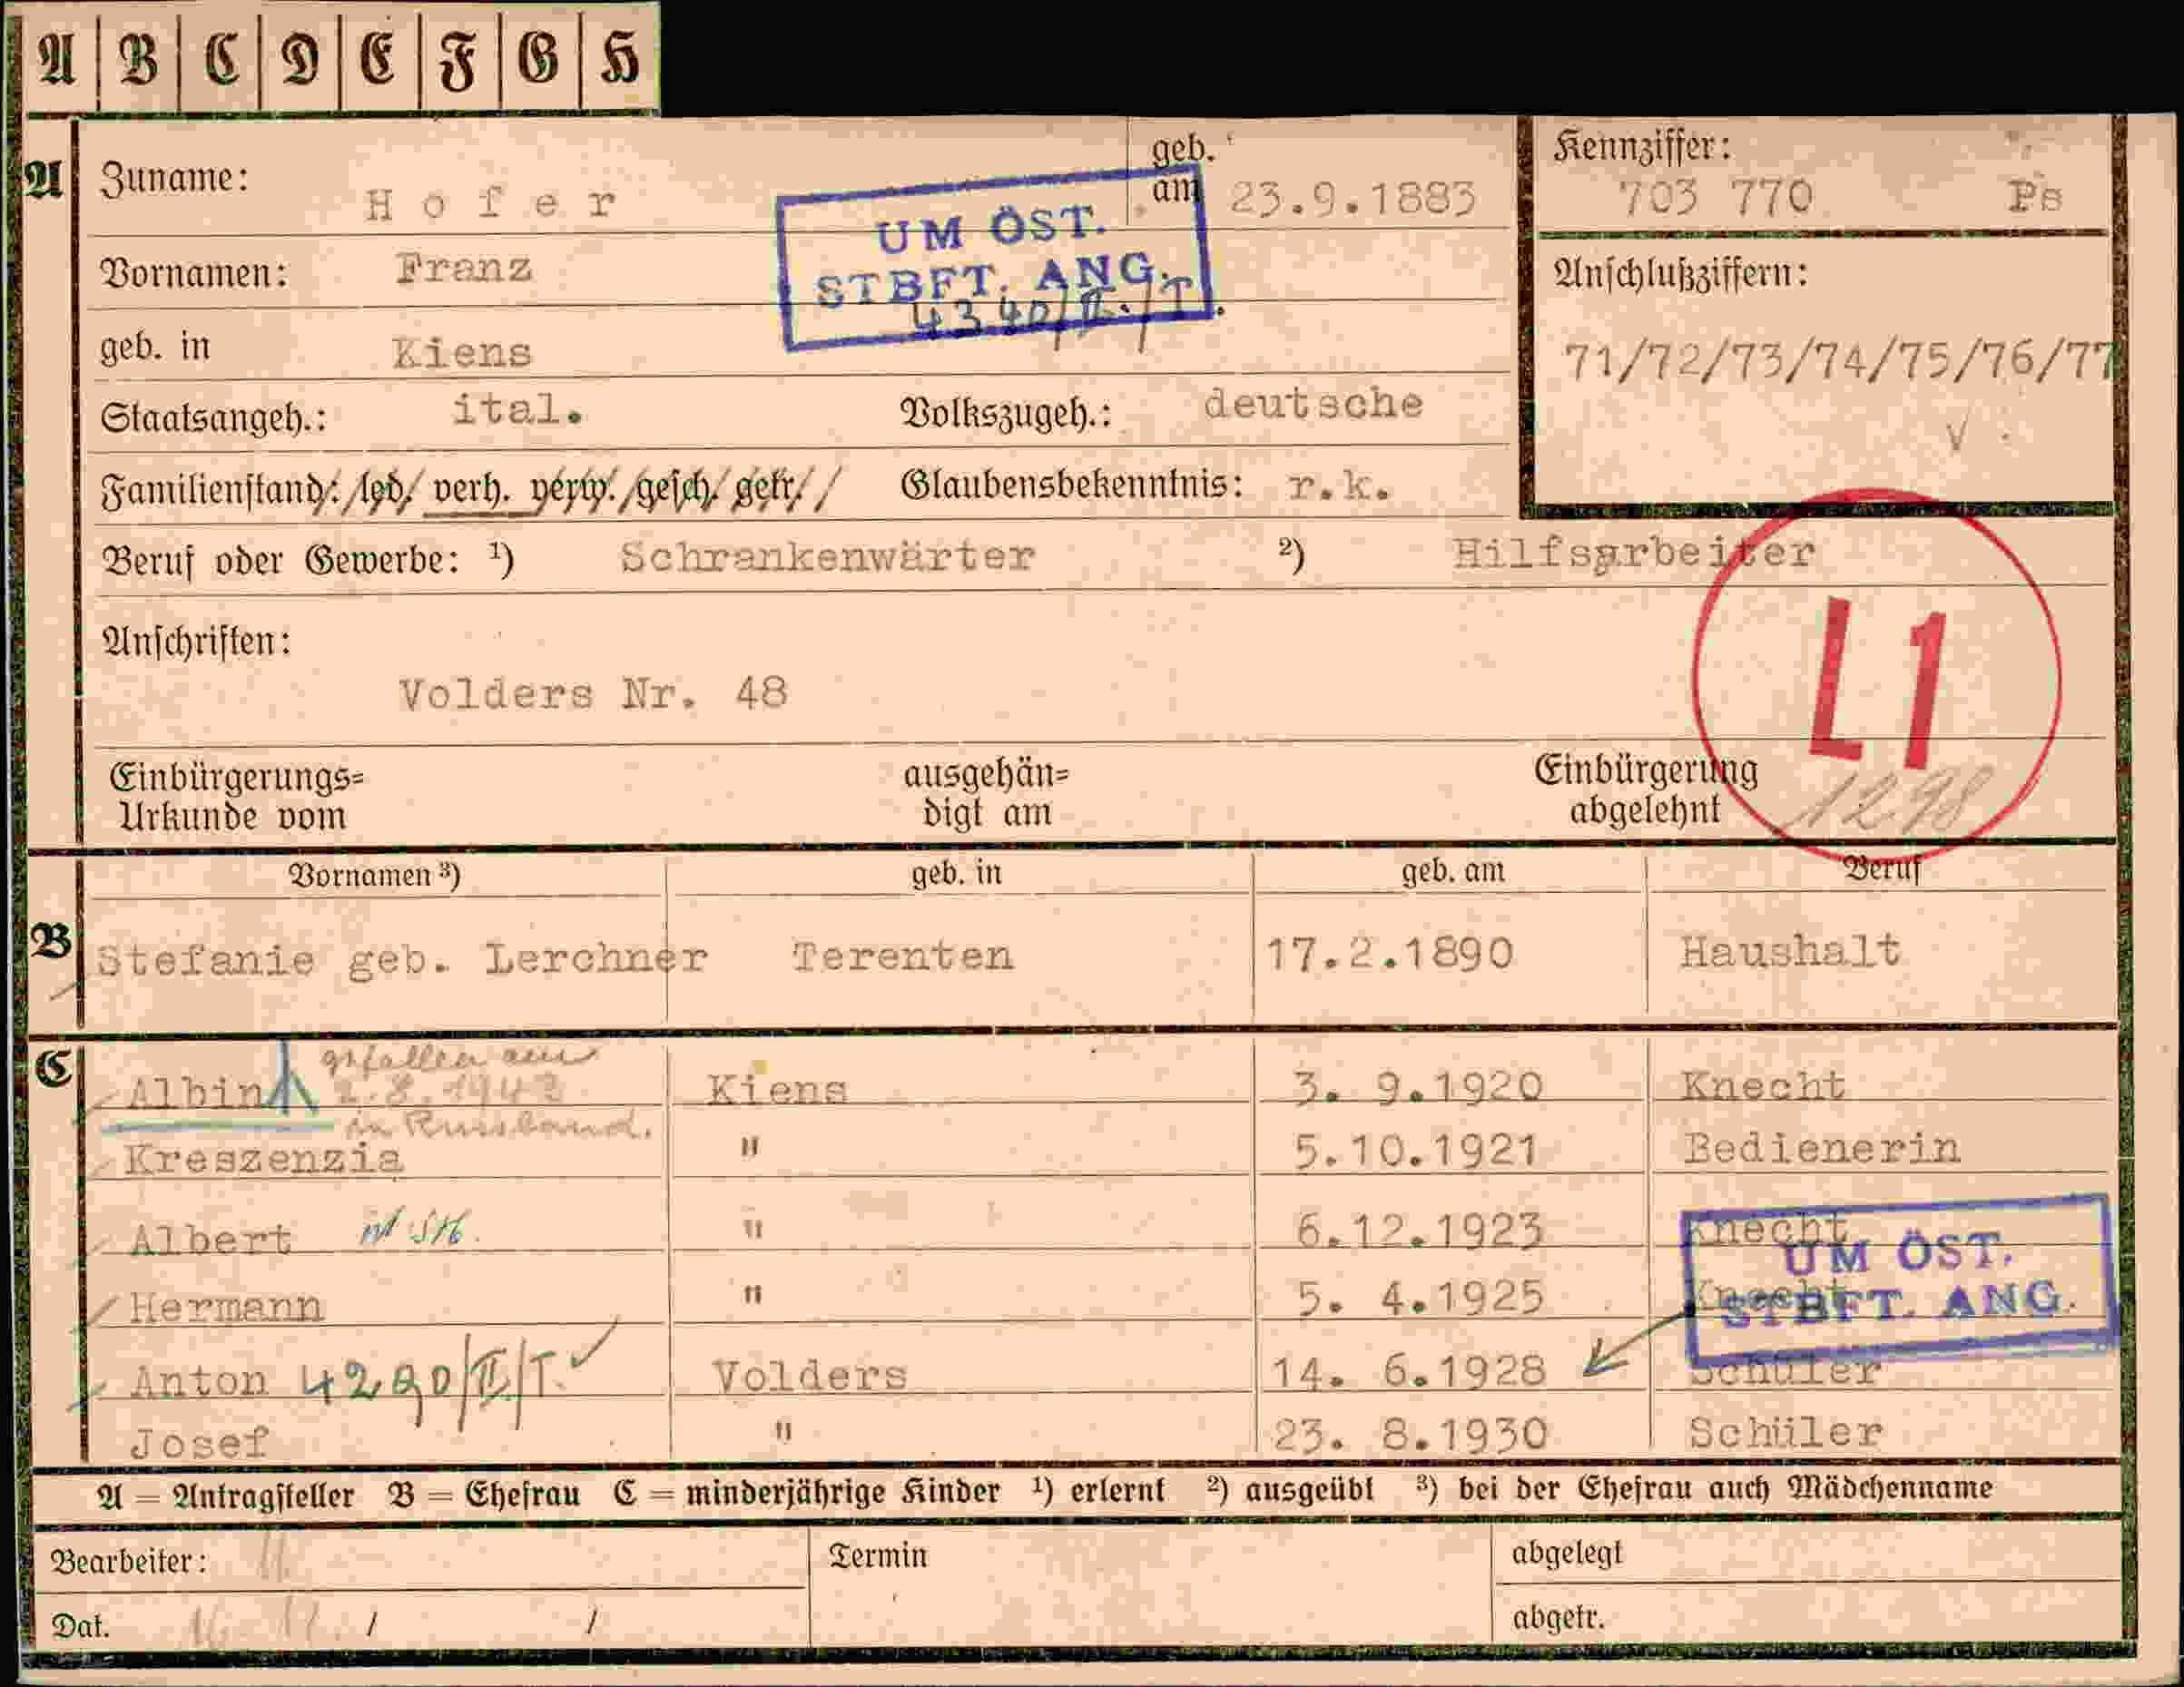 A B C D E F G H
A Zuname: H o f e r geb. am 23.9.1883
Kennziffer: 703 770 Ps
UM ÖST.
STBFT. ANG.
4340/II./T.
Vornamen: Franz
Anschlußziffern:
geb. in Kiens
71/72/73/74/75/76/77
V
Staatsangeh.: ital. Volkszugeh.: deutsche
Familienstand: led. verh. verw. gesch. getr. Glaubensbekenntnis: r.k.
Beruf oder Gewerbe: ¹) Schrankenwärter ²) Hilfsarbeiter
L1
1298
Anschriften:
Volders Nr. 48
Einbürgerungs=
Urkunde vom
ausgehän=
digt am
Einbürgerung
abgelehnt
Vornamen ³) geb. in geb. am Beruf
B Stefanie geb. Lerchner Terenten 17.2.1890 Haushalt
C gefallen am
Albin 2.8.1943 Kiens 3. 9.1920 Knecht
in Russland.
Kreszenzia " 5.10.1921 Bedienerin
Albert " 6.12.1923 Knecht
UM ÖST.
STBFT. ANG.
Hermann " 5. 4.1925 Knecht
Anton 4290/II/T. Volders 14. 6.1928 Schüler
Josef " 23. 8.1930 Schüler
A = Antragsteller B = Ehefrau C = minderjährige Kinder ¹) erlernt ²) ausgeübt ³) bei der Ehefrau auch Mädchenname
Bearbeiter: Termin abgelegt
Dat. / / abgetr.